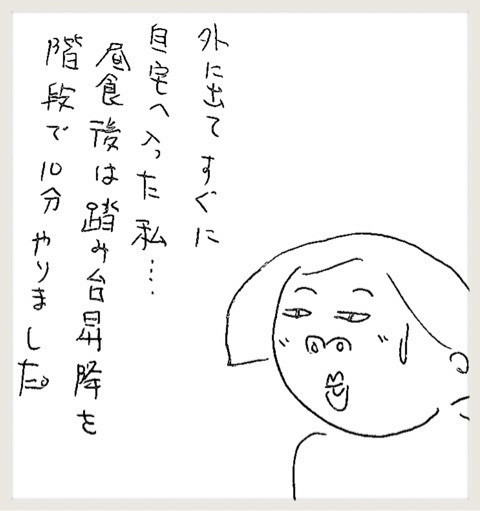 外に出てすぐに
自宅へ入った私…
昼食後は踏み台昇降を
階段で10分やりました。